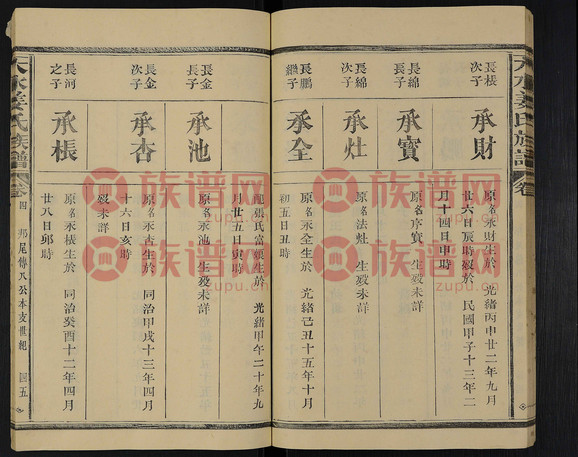 天水姜氏族譜
卷
長棖
之子
承財
原名永財生於 光緒丙申廿二年九月
廿六日辰時歿於 民國甲子十三年二
月十四日申時
長綿
次子
承寶
原名序寶 生歿未詳
長綿
三子
承灶
原名法灶 生歿未詳
長鵬
繼子
承全
原名永全生於 光緒己丑十五年十月
初五日丑時
長金
長子
承池
原名永池 生歿未詳
配張氏富嬌生於 光緒甲午二十年九
月廿五日卯時
長金
次子
承杏
原名永杏生於 同治甲戌十三年四月
十六日亥時
歿未詳
長河
之子
承棖
原名永棖生於 同治癸酉十二年四月
廿八日卯時
天水姜氏族譜
卷
四 邦尾傳八公本支世紀 四五
族谱网
zupu.cn